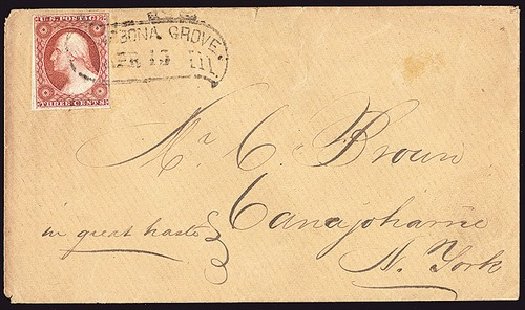 U.S. POSTAGE
THREE CENTS
BONA GROVE
13 Ill.
Mr. C. Brown
Canajoharie
N. York
in great haste